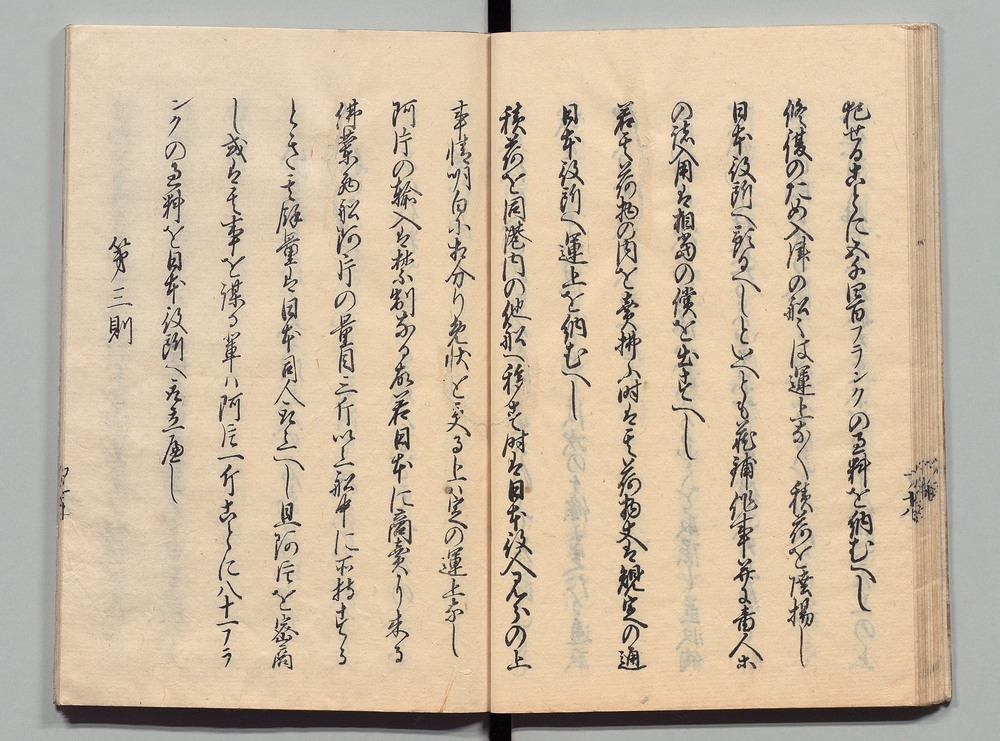 犯せることに五千四百フランクの過料を納むへし
修復のため入津の船々は運上なく積荷を陸揚し
日本役所へ預るへしといへとも蔵舗作事并に番人等
の諸入用は相当の償を出すへし
若其荷物の内を売払ふ時は其荷物丈は規定の通
日本役所へ運上を納むへし
積荷を同港内の他船へ移す時は日本役人見分の上
事情明白に相分り免状を受る上は定の運上なし
阿片の輸入は禁制なる故若日本に商売に来る
佛蘭西船阿片の量目三斤以上船中に所持する
ときは其余量は日本司人取上へし且阿片を密商
し或は其事を謀る輩は阿片一斤ことに八十一フラ
ンクの過料を日本役所へ取立へし
第三則